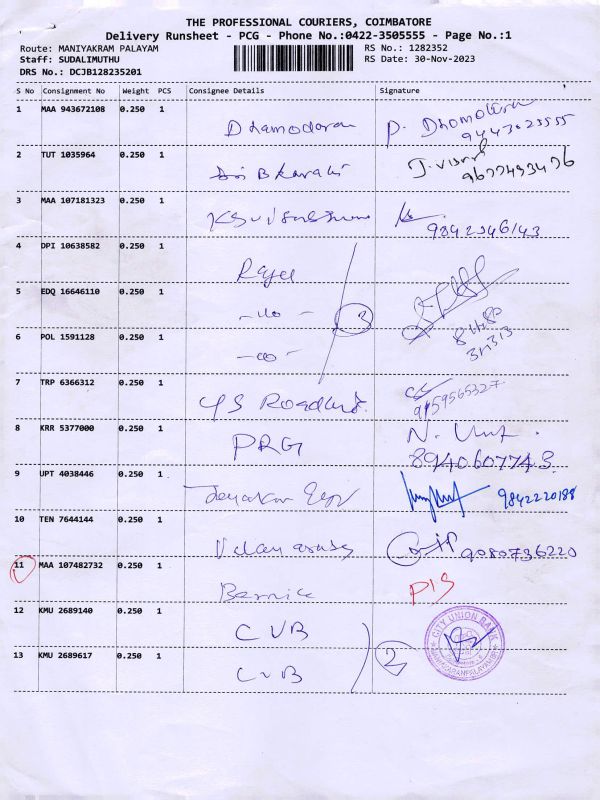 THE PROFESSIONAL COURIERS, COIMBATORE
Delivery Runsheet - PCG - Phone No.:0422-3505555 - Page No.:1
Route: MANIYAKRAM PALAYAM RS No.: 1282352
Staff: SUDALIMUTHU RS Date: 30-Nov-2023
DRS No.: DCJB128235201
S No Consignment No Weight PCS Consignee Details Signature
1 MAA 943672108 0.250 1 Dhamodaran D. Dhamo
2 TUT 1035964 0.250 1 Sri
9677493476
3 MAA 107181323 0.250 1
4 DPI 10638582 0.250 1 Rajee
5 EDQ 16646110 0.250 1 -do- 3
6 POL 1591128 0.250 1 -do-
7 TRP 6366312 0.250 1 4S 9159565327
8 KRR 5377000 0.250 1 PRG N.
8940607743
9 UPT 4038446 0.250 1 Jeyakar 9842220188
10 TEN 7644144 0.250 1 9080736220
11 MAA 107482732 0.250 1 Bernice PIS
12 KMU 2689140 0.250 1 CUB CITY UNION BANK
13 KMU 2689617 0.250 1 CUB 2